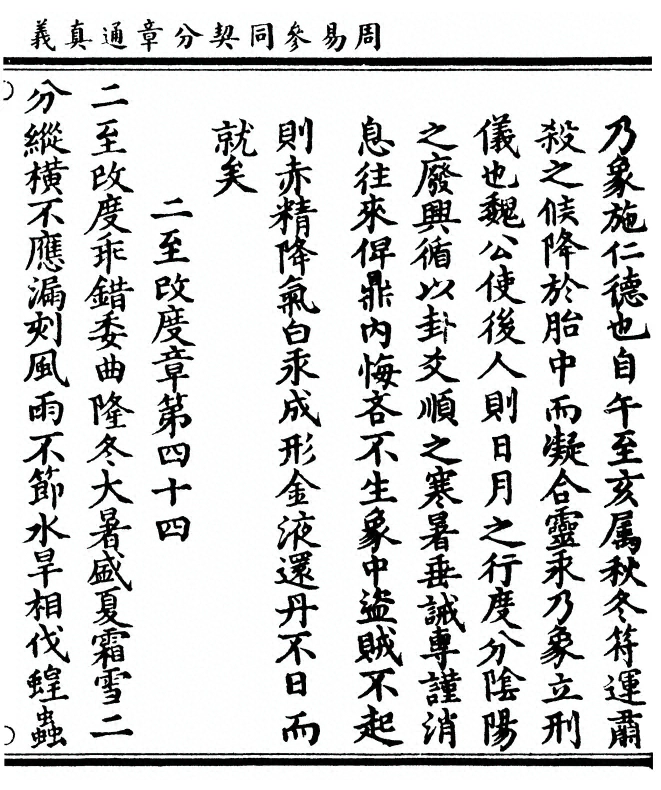 周易參同契分章通真義
乃象施仁德也自午至亥属秋冬符運肅
殺之候降於胎中而凝合靈汞乃象立刑
儀也魏公使後人則日月之行度分陰陽
之廢興循以卦爻順之寒暑垂誡專謹消
息往來俾鼎內悔吝不生象中盜賊不起
則赤精降氣白汞成形金液還丹不日而
就矣
二至改度章第四十四
二至改度乖錯委曲隆冬大暑盛夏霜雪二
分縱橫不應漏刻風雨不節水旱相伐蝗蟲